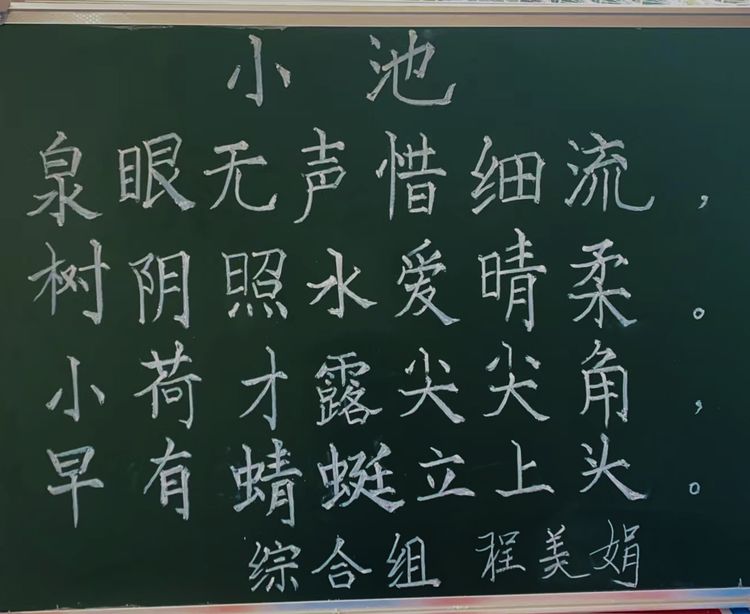 小池
泉眼无声惜细流，
树阴照水爱晴柔。
小荷才露尖尖角，
早有蜻蜓立上头。
综合组 程美娟